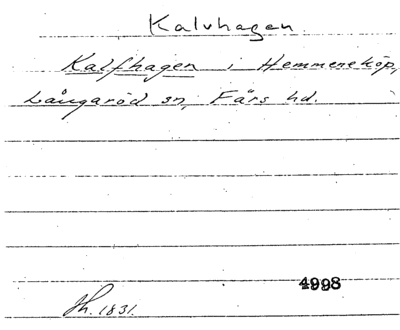 Kalvhagen
Kalfhagen i Hemmeneköp,
Långaröd sn, Färs hd.
4998
Jh. 1831.